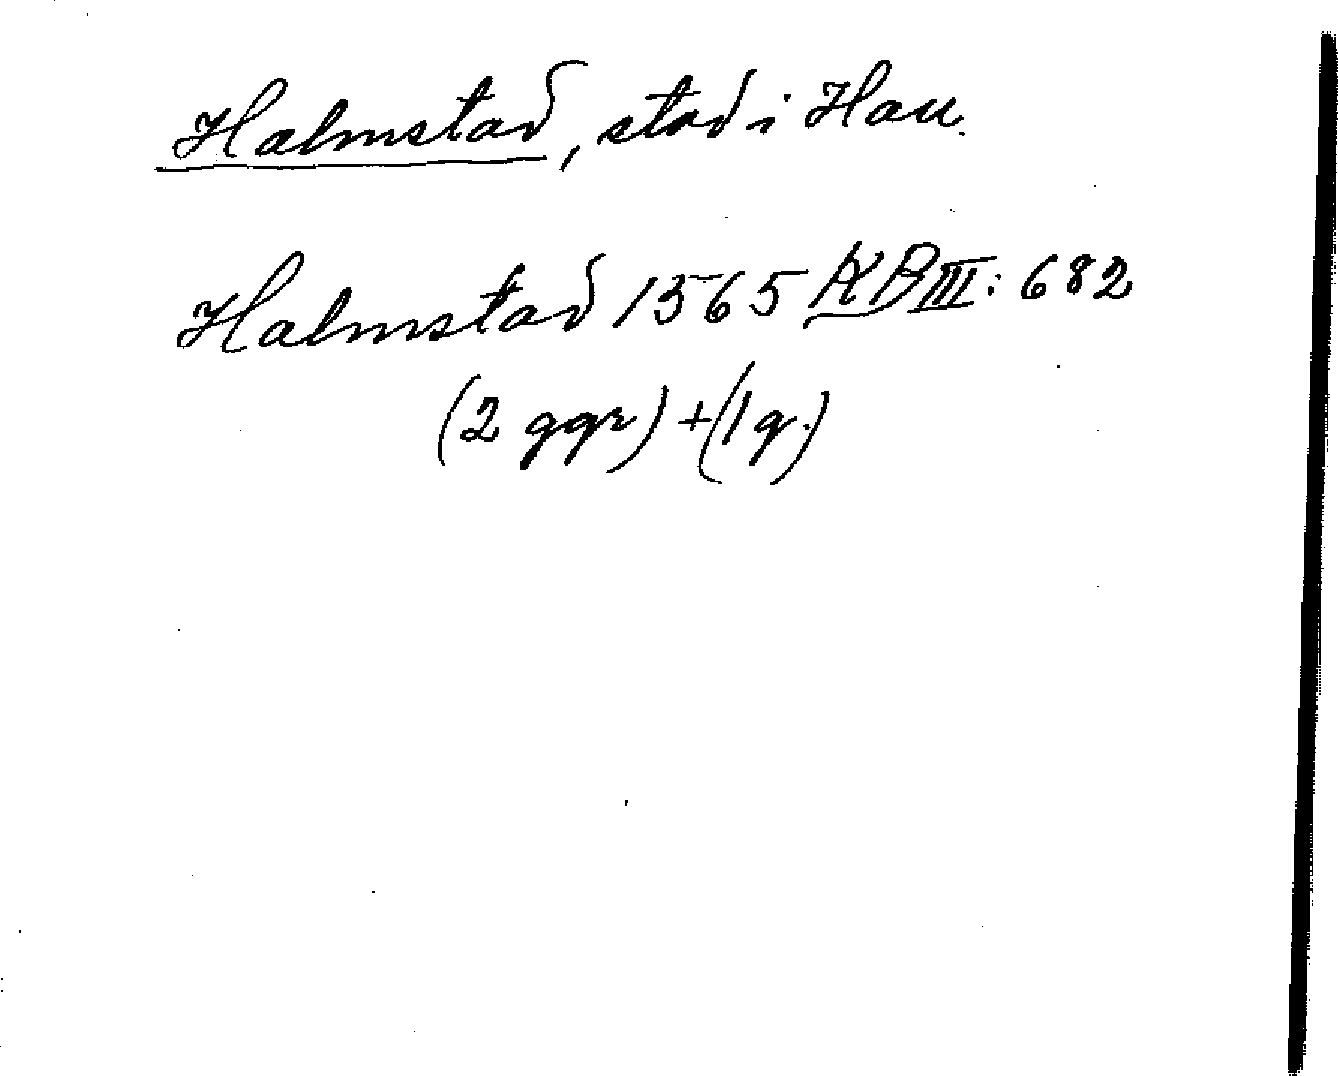 Halmstad, stad i Hall.
Halmstad 1565 KB III: 682
(2 ggr) + (1 g.)